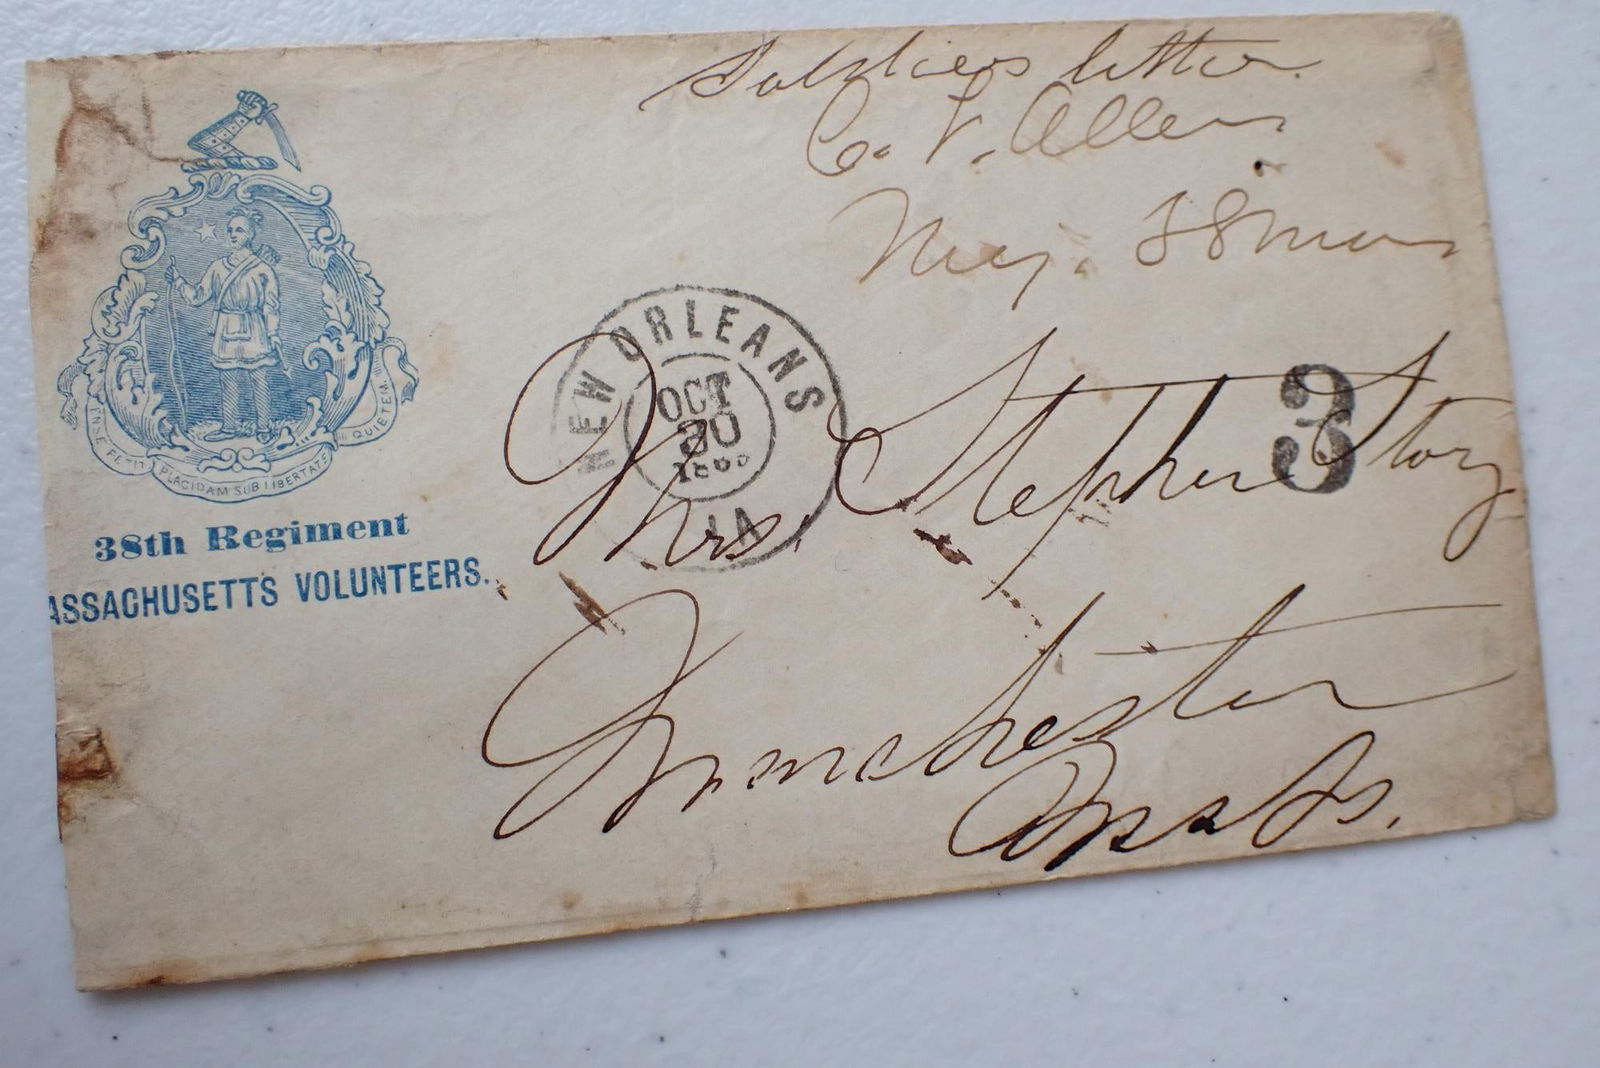 Soldiers letter.
C. F. Allen
Maj. 38 Mass
ENSE PETIT PLACIDAM SUB LIBERTATE QUIETEM
38th Regiment
ASSACHUSETTS VOLUNTEERS.
NEW ORLEANS
OCT
1863
LA
3
Mrs. Stephen Story
Manchester
Mass.